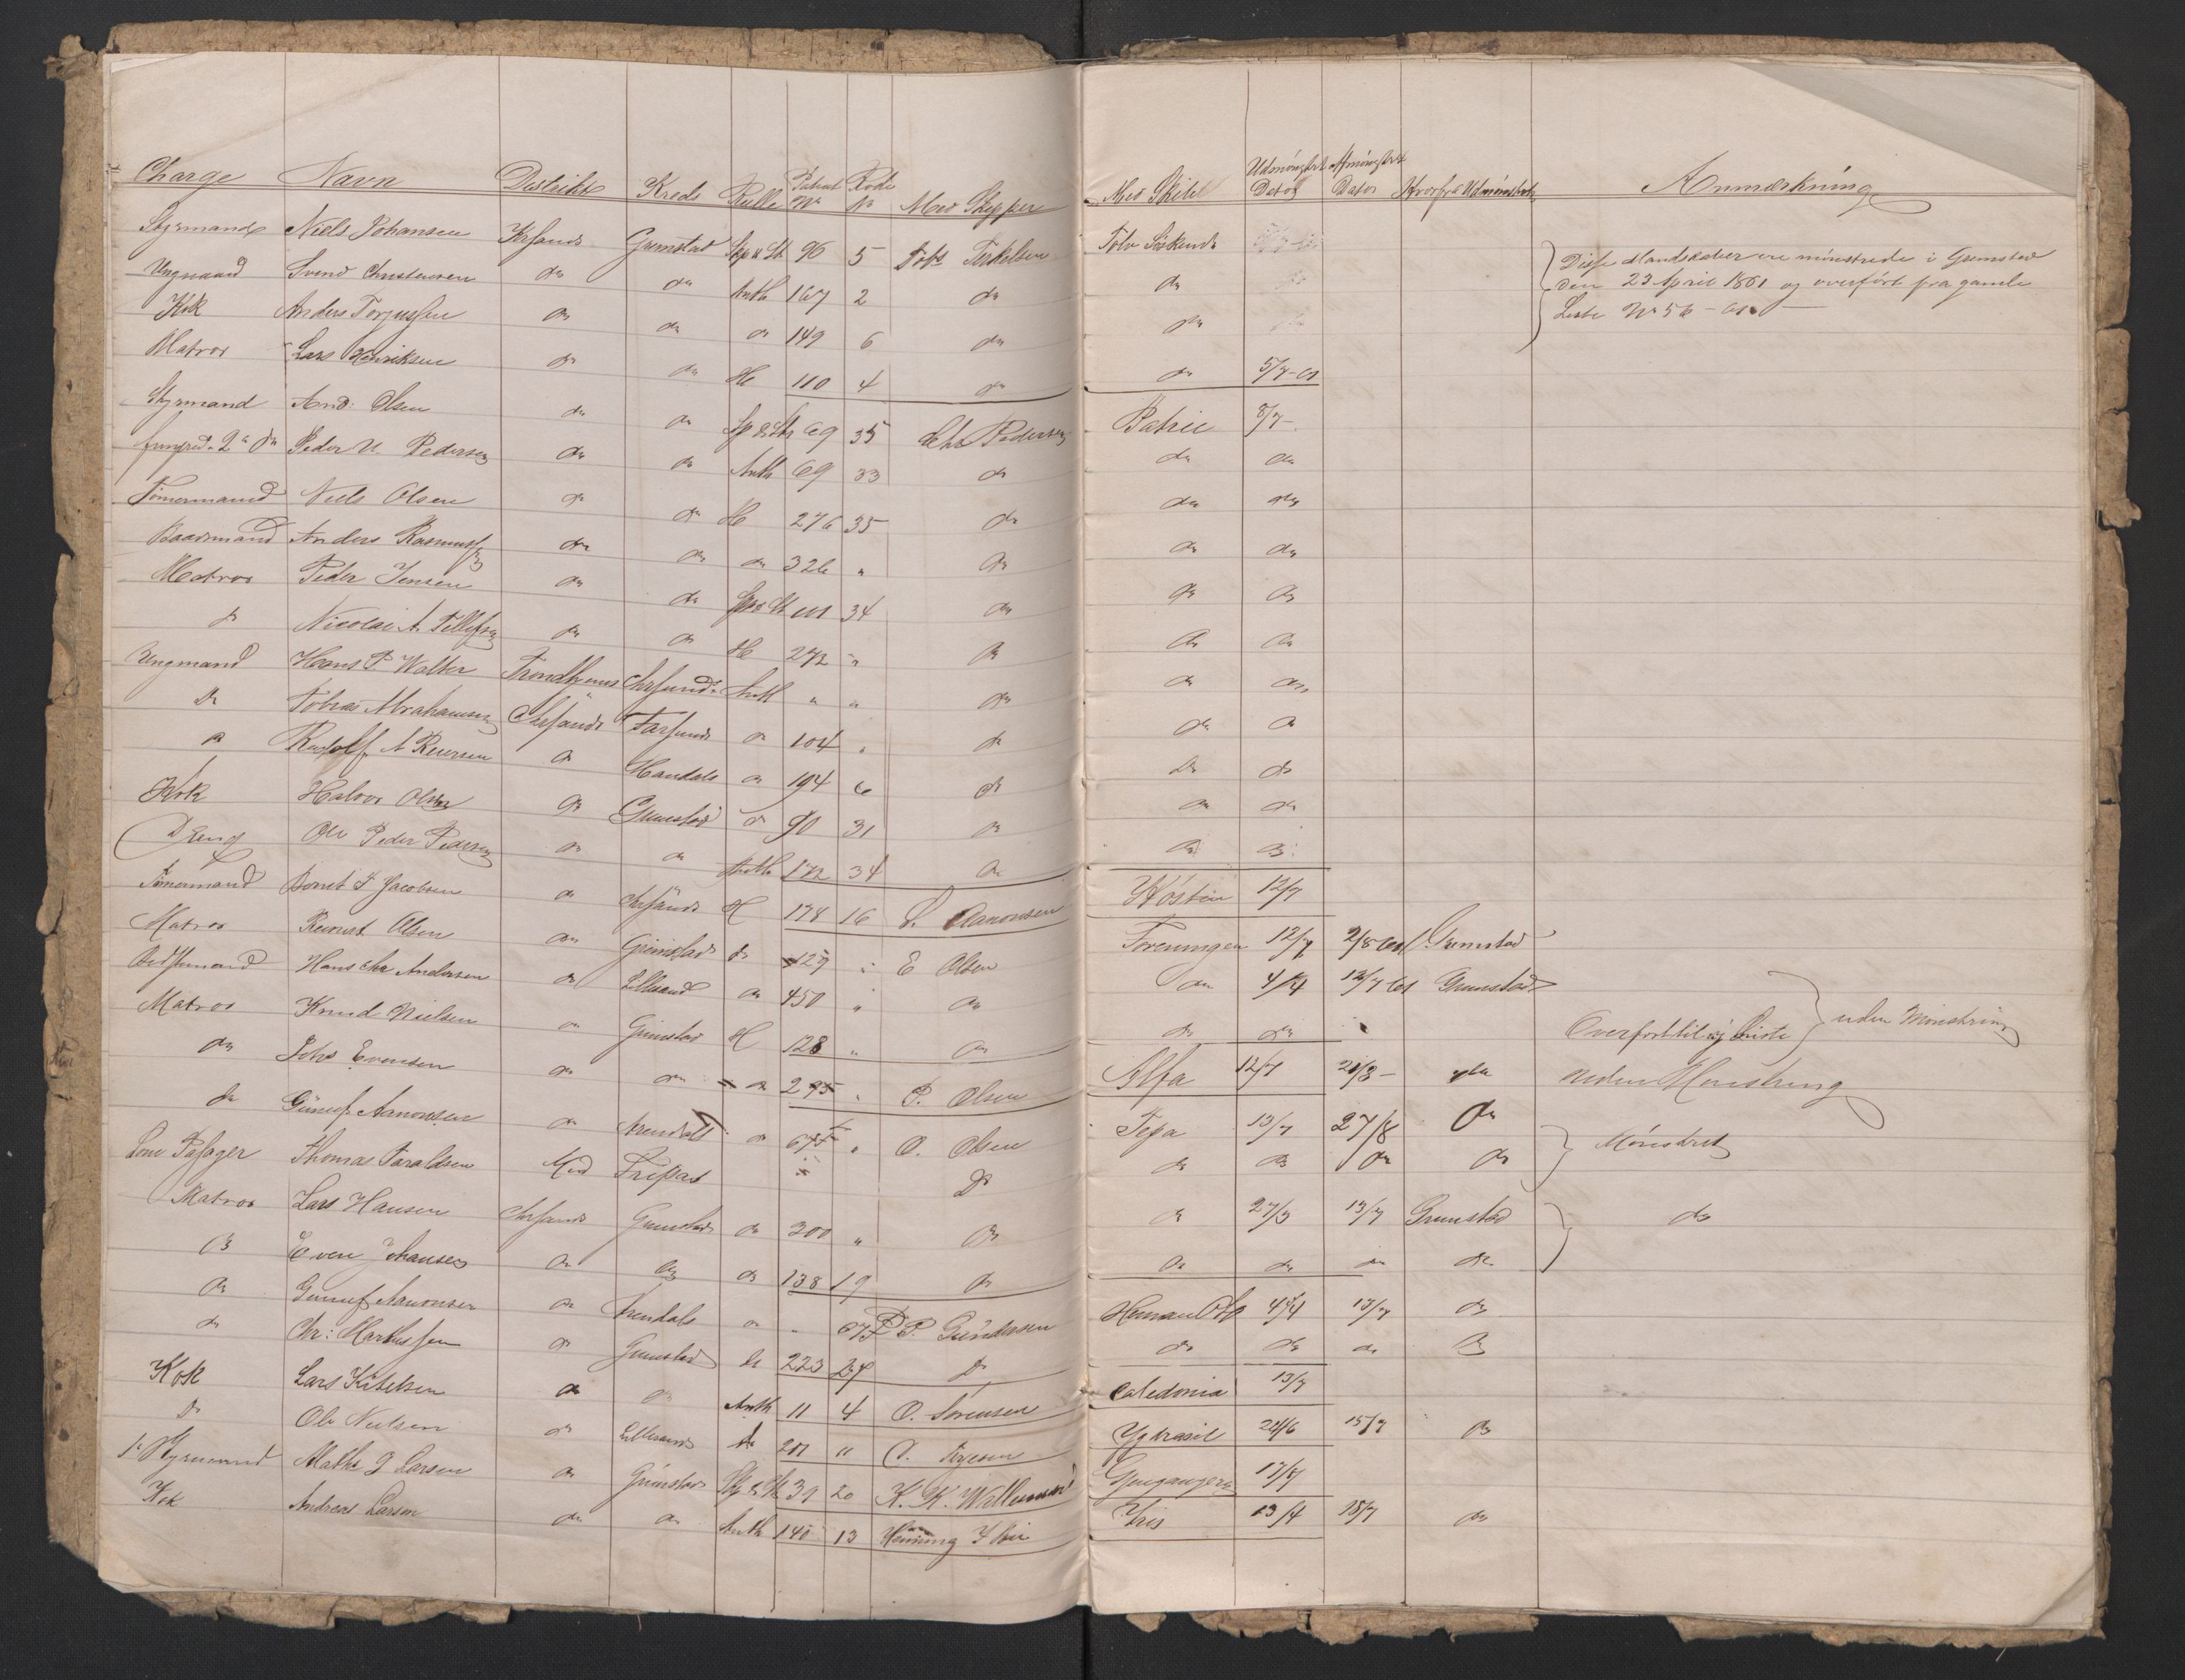 Charge Navn Distrikt Kreds Rulle Patent No Rode No Med Skipper Med Skibet Udmönstret Dato Afmönstret Dato Hvorfra Udmönstret Anmærkning
Styrmand Niels Johansen Krsand Grimstad Sp & St 96 5 Tobs Terkelsen Tolv Södskende
Ungmand Svend Christensen do do Anth 167 2 do do
Kok Anders Torjussen do do do 149 6 do do
Matros Lars Henriksen do do H 110 4 do do 5/7-61
Disse Mandskaber ere mönstrede i Grimstad
den 23 April 1861 og overfört fra gamle
Liste No 56 - 61
Styrmand And: Olsen do do Sp & St 69 35 Chr Pedersen Patric 8/7-
2e do Peder N. Pedersen do do Anth 69 33 do do do
Tömermand Niels Olsen do do H 276 35 do do do
Baadsmand Anders Rasmussen do do do 326 " do do do
Matros Peder Jensen do do Sp & St 34 do do do
do Nicolai A. Tellefsen do do H 272 " do do do
Ungmand Hans P Walter Trondhjems Chrsund Anth " " do do do
do Tobias Abrahamsen Chrsands Farsund do 104 " do do do
do A Reiersen do Mandals do 194 6 do do do
Kok Halvor Olsen do Grimstad do 90 31 do do do
Dreng Ole Peder Pedersen do do Anth 172 34 do do do
Tömermand Berret T Jacobsen do Chrsand H 178 16 Aanonsen Hösten 12/7
Matros Reinert Olsen do Grimstad do 129 " E Olsen Foreningen 12/7 2/8 61 Grimstad
Bedstemand Hans Chr Andersen do Lillesand do 450 " do do 4/4 12/7 61 Grimstad
Matros Knud Nielsen do Grimstad H 128 " do do do Overfört til ny Liste uden Mönstring
do Johs Evensen do do do 295 " P. Olsen Alfa 12/7 20/8 - do uden Mönstring
do Gunuf Aanonsen do Arendal do 67 F " O. Olsen Tega 13/7 27/8 do
Som Passager Thomas Taraldsen Med Fripas do do do do do Mönstret
Matros Lars Hansen Chrsand Grimstad do 300 " do do 27/3 13/7 Grimstad
do Even Johansen do do do 138 19 do do do do do do
do Gunuf Aanonsen do Arendals do " 67 F P. Gundersen Herman Otto 4/4 13/7 do
do Chr: Markussen do Grimstad H 223 27 do do do do do
Kok Lars Kitelsen do do Anth 11 4 O. Sörensen Caledonia 13/7
do Ole Nielsen do Lillesand do 201 11 O. Terjesen Ygdrasil 24/6 15/7 do
1e Styrmand Mathi J Larsen do Grimstad Sp & St 39 20 K. K. Willumsen Gjengangeren 17/7
Kok Andreas Larsen do do Anth 140 13 Henning Iris 13/4 18/7 do